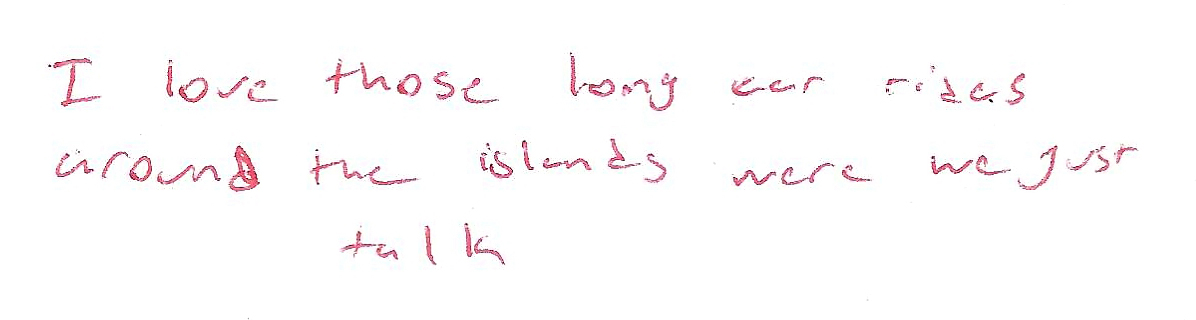 I love those long car rides
around the islands were we just
talk